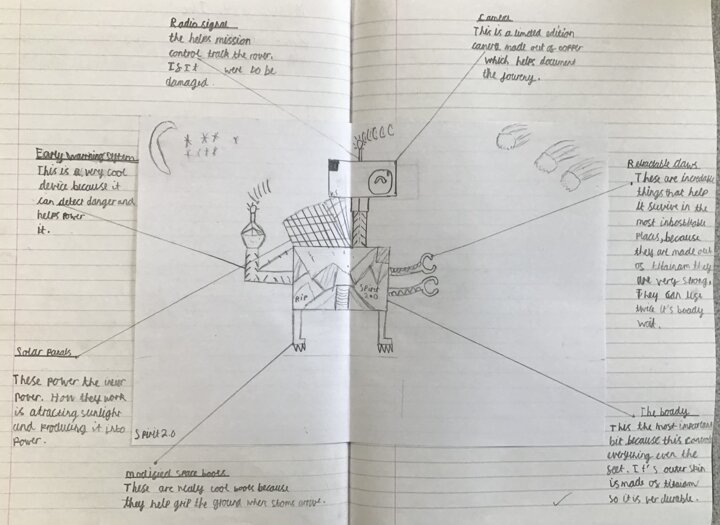 Radio signal
the helps mission
control track the rover.
If It were to be
damaged.
Camera
This is a limited edition
camera made out of copper
which helps document
the Jourery.
Early warning system
This is a very cool
device because it
can detect danger and
helps power
it.
Retractable claws
These are incredable
things that help
it survive in the
most inhosbitable
places, because
they are made out
of titainam they
are very strong.
They can lift
it's boady
weit.
RIP
Spirit
2.0
Solar panals
These power the
rover. How they work
is atracting sunlight
and producing it into
power.
Spirit 2.0
modified space boots
These are realy cool boots because
they help grip the ground when stoms arrive.
The boady
This the most important
bit because this controls
everything even the
feet. It's outer skin
is made of titaiam
so it is ver durable.